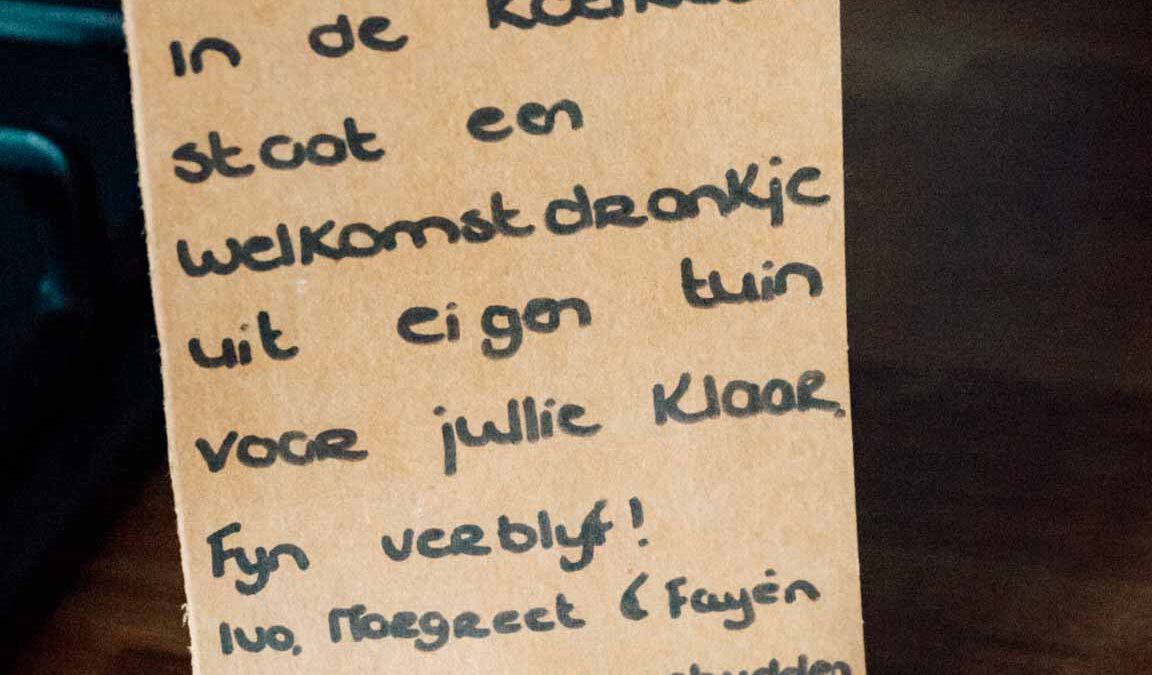 in de
staat een
welkomstdrankje
uit eigen tuin
voor jullie klaar.
Fyn verblyf!
Ivo, Margreet & Fayén